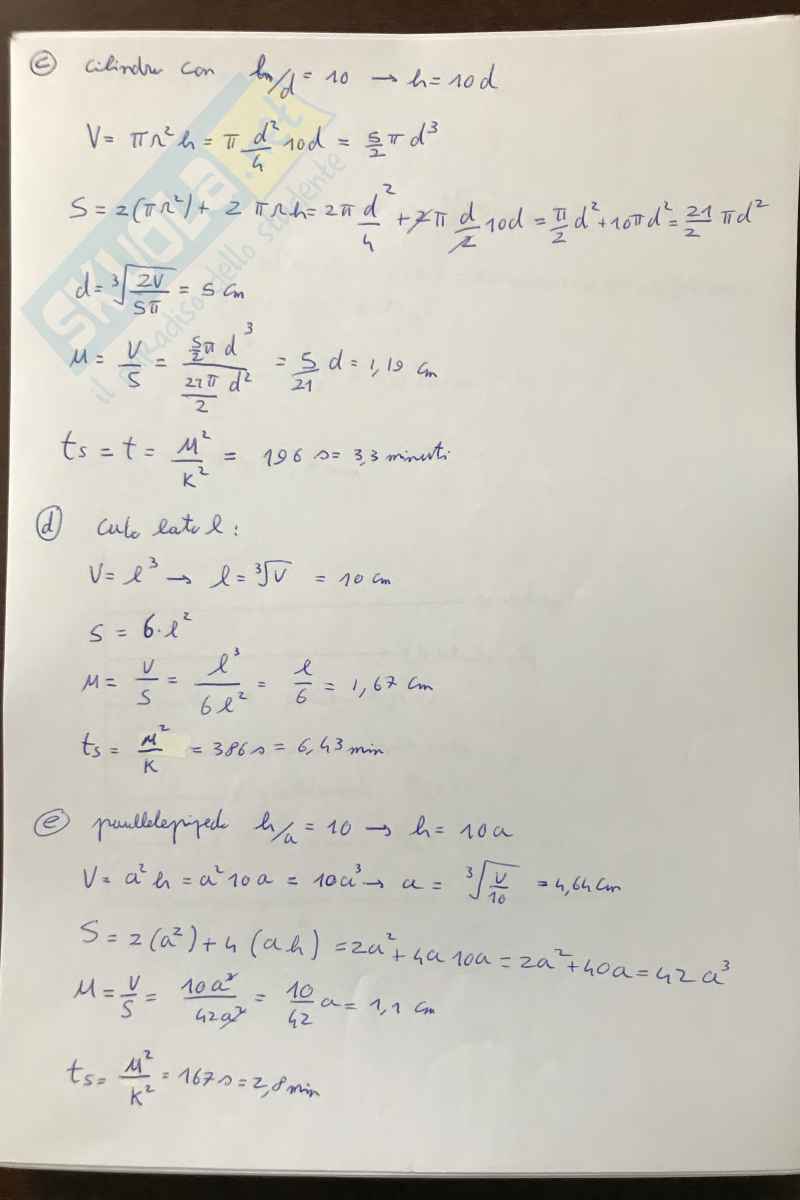 ⓒ cilindro con h/d = 10 → h = 10d
V = πr²h = π d²/4 10d = 5/2 π d³
S = 2(πr²) + 2πrh = 2π d²/4 + 2π d/2 10d = π/2 d² + 10πd² = 21/2 πd²
d = ³√(2V/5π) = 5 cm
M = V/S = (5/2 π d³)/(21π/2 d²) = 5/21 d = 1,19 cm
ts = t = M²/K² = 196 s = 3,3 minuti
ⓓ cubo lato l :
V = l³ → l = ³√V = 10 cm
S = 6·l²
M = V/S = l³/6l² = l/6 = 1,67 cm
ts = M²/K = 386 s = 6,43 min
ⓔ parallelepipedo h/a = 10 → h = 10a
V = a²h = a²10a = 10a³ → a = ³√(V/10) = 4,64 cm
S = 2(a²) + 4(ah) = 2a² + 4a10a = 2a² + 40a = 42a³
M = V/S = 10a³/42a² = 10/42 a = 1,1 cm
ts = M²/K² = 167 s = 2,8 min
SKUOLA.net
il paradiso dello studente